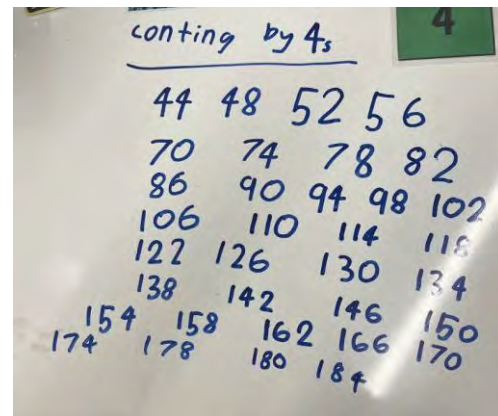 4
conting by 4s
44 48 52 56
70 74 78 82
86 90 94 98 102
106 110 114 118
122 126 130 134
138 142 146 150
154 158 162 166 170
174 178 180 184